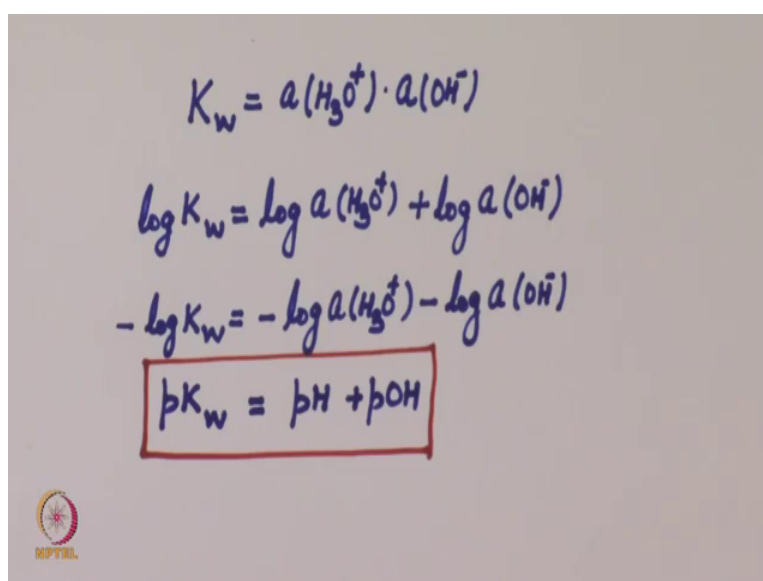 K_w = a(H₃O⁺)·a(OH⁻)
log K_w = log a(H₃O⁺) + log a(OH⁻)
- log K_w = - log a(H₃O⁺) - log a(OH⁻)
pK_w = pH + pOH
NPTEL